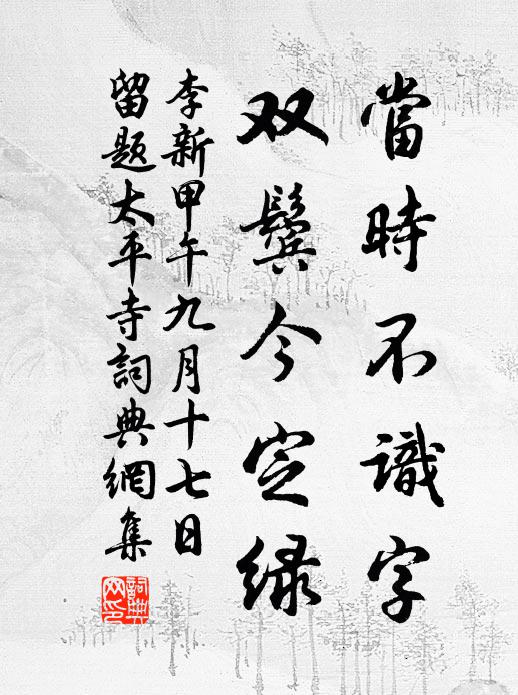 當時不識字
双鬓今定緑
李新甲午九月十七日
留题太平寺詞典網集